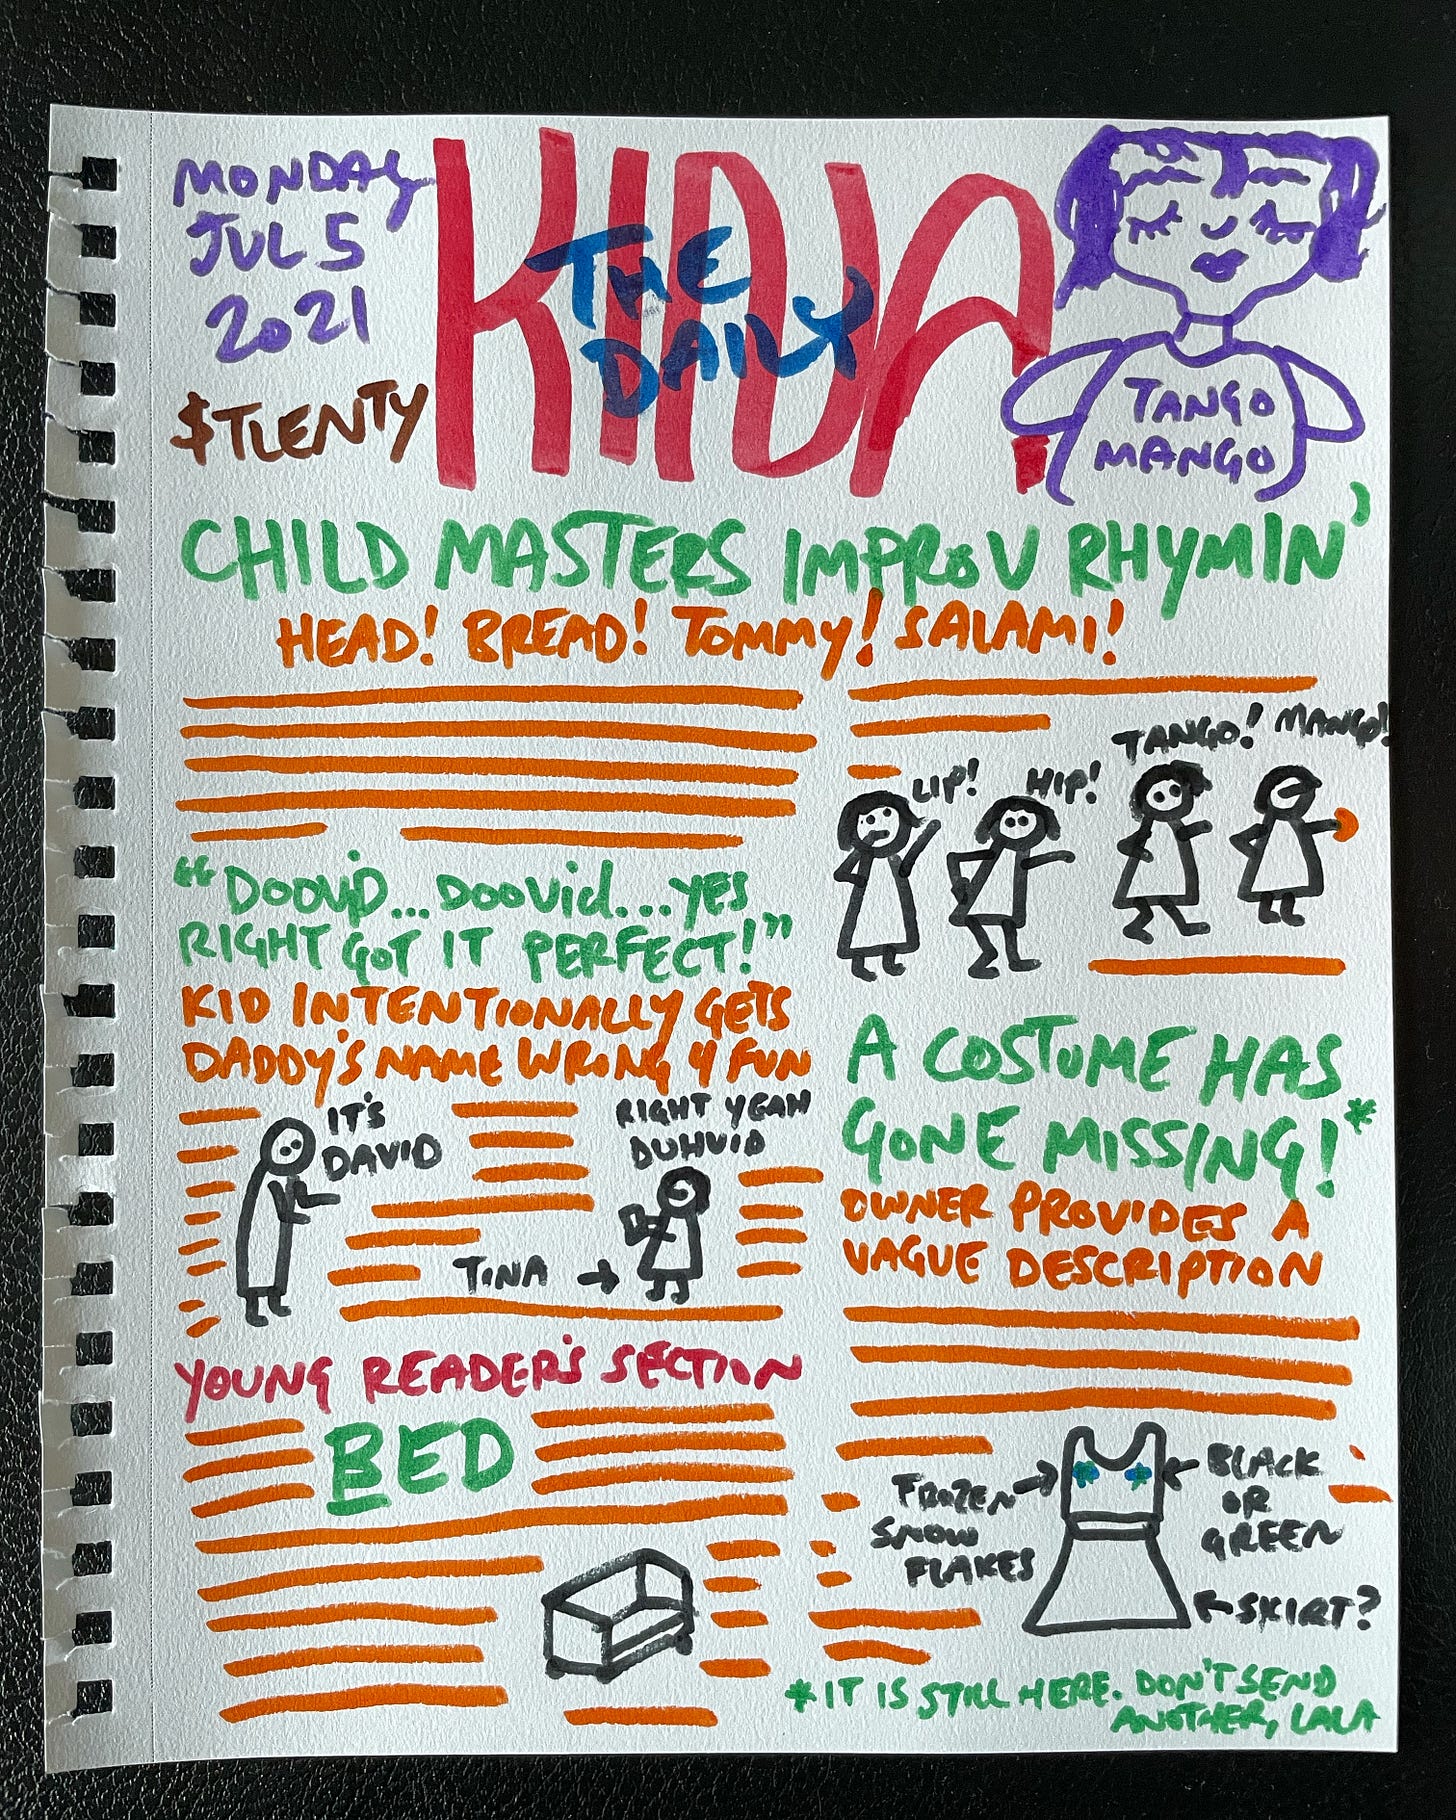 MONDAY
JUL 5
2021
$TLENTY
THE
DAILY
KIDA
TANGO
MANGO
CHILD MASTERS IMPROV RHYMIN'
HEAD! BREAD! TOMMY! SALAMI!
LIP!
HIP!
TANGO! MANGO!
"DOOVID... DOOVID... YES
RIGHT GOT IT PERFECT!"
KID INTENTIONALLY GETS
DADDY'S NAME WRONG 4 FUN
IT'S
DAVID
RIGHT YEAH
DUHVID
TINA →
A COSTUME HAS
GONE MISSING!*
OWNER PROVIDES A
VAGUE DESCRIPTION
YOUNG READER'S SECTION
BED
FROZEN →
SNOW
FLAKES
← BLACK
OR
GREEN
← SKIRT?
* IT IS STILL HERE. DON'T SEND
ANOTHER, LALA